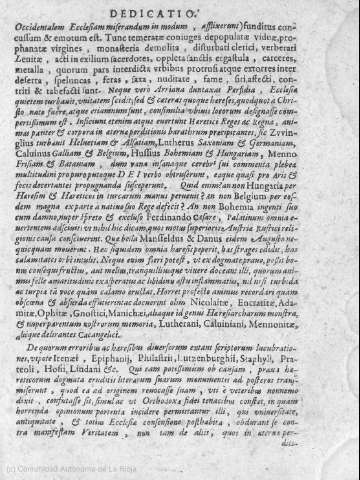 DEDICATIO.
Occidentalem Ecclesiam miserandum in modum, afflixerunt) funditus con-
cussum & emotum est. Tunc veneratæ coniuges depopulatæ videæ, pro-
phanatæ virgines, monasteria demolita, disturbati clerici, verberati
Zenitæ, acti in exilium sacerdotes, oppleta sanctis ergastula, carceres,
metalla, quorum pars interdictis urbibus protrusi atque extorres inter
deserta, speluncas, feras, saxa, nuditate, fame, siti, affecti, con-
triti & tabefacti sunt. Neque verò Arriana duntaxat Perfidia, Ecclesiæ
quietem turbauit, unitatem scidit, sed & cæteræ quoque hæreses, quodquot a Chri-
sto nato fuere, atque etiamnum sunt, consimilia vbiuis locorum designasse com-
pertissimum est. Insaniunt etenim atque euertunt Hæretici Reges ac Regna, ani-
mas pariter & corpora in æternæ perditionis barathrum præcipitantes, sic Zvvin-
glius turbauit Heluetiam & Alsatiam, Lutherus Saxoniam & Germaniam,
Caluinus Galliam & Belgium, Hussius Bohemiam & Hungariam, Menno
Frisiam & Batauiam, dum suum insanæque cerebri sui commenta, plebes
multitudini pro puro putoque DEI verbo obtruserunt, eaque quasi pro Aris &
focis decertantes propugnanda susceperunt, Quid enim? an non Hungaria per
Hæresim & Hæreticos in turcarum manus peruenit? an non Belgium per eas-
dem magna ex parte a natiuo suo Rege deficit? An non Bohemia ingenti suo
cum damno, nuper spreto & excluso Ferdinando Cæsare, Palatinum omnia e-
uertentem asciuit: vt nihil hic dicam, quos motus superiori Austria rustici reli-
gionis causa consciuerint. Quæ bella Mansfeldius & Danus eadem Augusto ne-
quicquam mouerint. Hec siquidem omnia hæresis peperit, hæc fruges edidit, has
calamitates orbi intulit. Neque enim fieri potest, vt ex dogmate prauo, posito bo-
num consequi fructum, aut melius, tranquilliusque viuere docentes illi, quorum ani-
mus felle amaritudinis exasperatus ac libidinis æstu inflammatus, nil nisi turbida
ac turpia tò voce quàm calamo eructat. Horret profecto animus recordari quàm
obscœna & absurda effutierint ac docuerint olim Nicolaitæ, Encratitæ, Ada-
mitæ, Ophitæ, Gnostici, Manichæi, aliaque id genus Hæresiarcharum monstra,
& nuper parentum nostrorum memoria, Lutherani, Caluiniani, Mennonitæ,
aliique delirantes Cacangelici.
De quorum erroribus ac hæresibus diuersorum extant scriptorum lucubratio-
nes, vtpote Irenæi, Epiphanij, Philastrij, Lutzenburghij, Staphyli, Pra-
teoli, Hosij, Lindani &c. Qui eam potissimum ob causam, praua hæ-
reticorum dogmata erroresque literarum suarum monumentis ad posteros trans-
miserunt, quod ea ad originem reuocasse suam, vti è veteribus nonnemo
dixit, confutasse sit, simul ac vt Orthodoxæ fidei tenacibus constet, in quam
horrenda opinionum portenta incidere permittantur illi, qui vniuersitate,
antiquitate, & totius Ecclesiæ consensione posthabita, obdurant se con-
tra manifestam Veritatem, non tam de alijs, quos in æternæ per-
ditio-
(c) Comunidad Autónoma de La Rioja